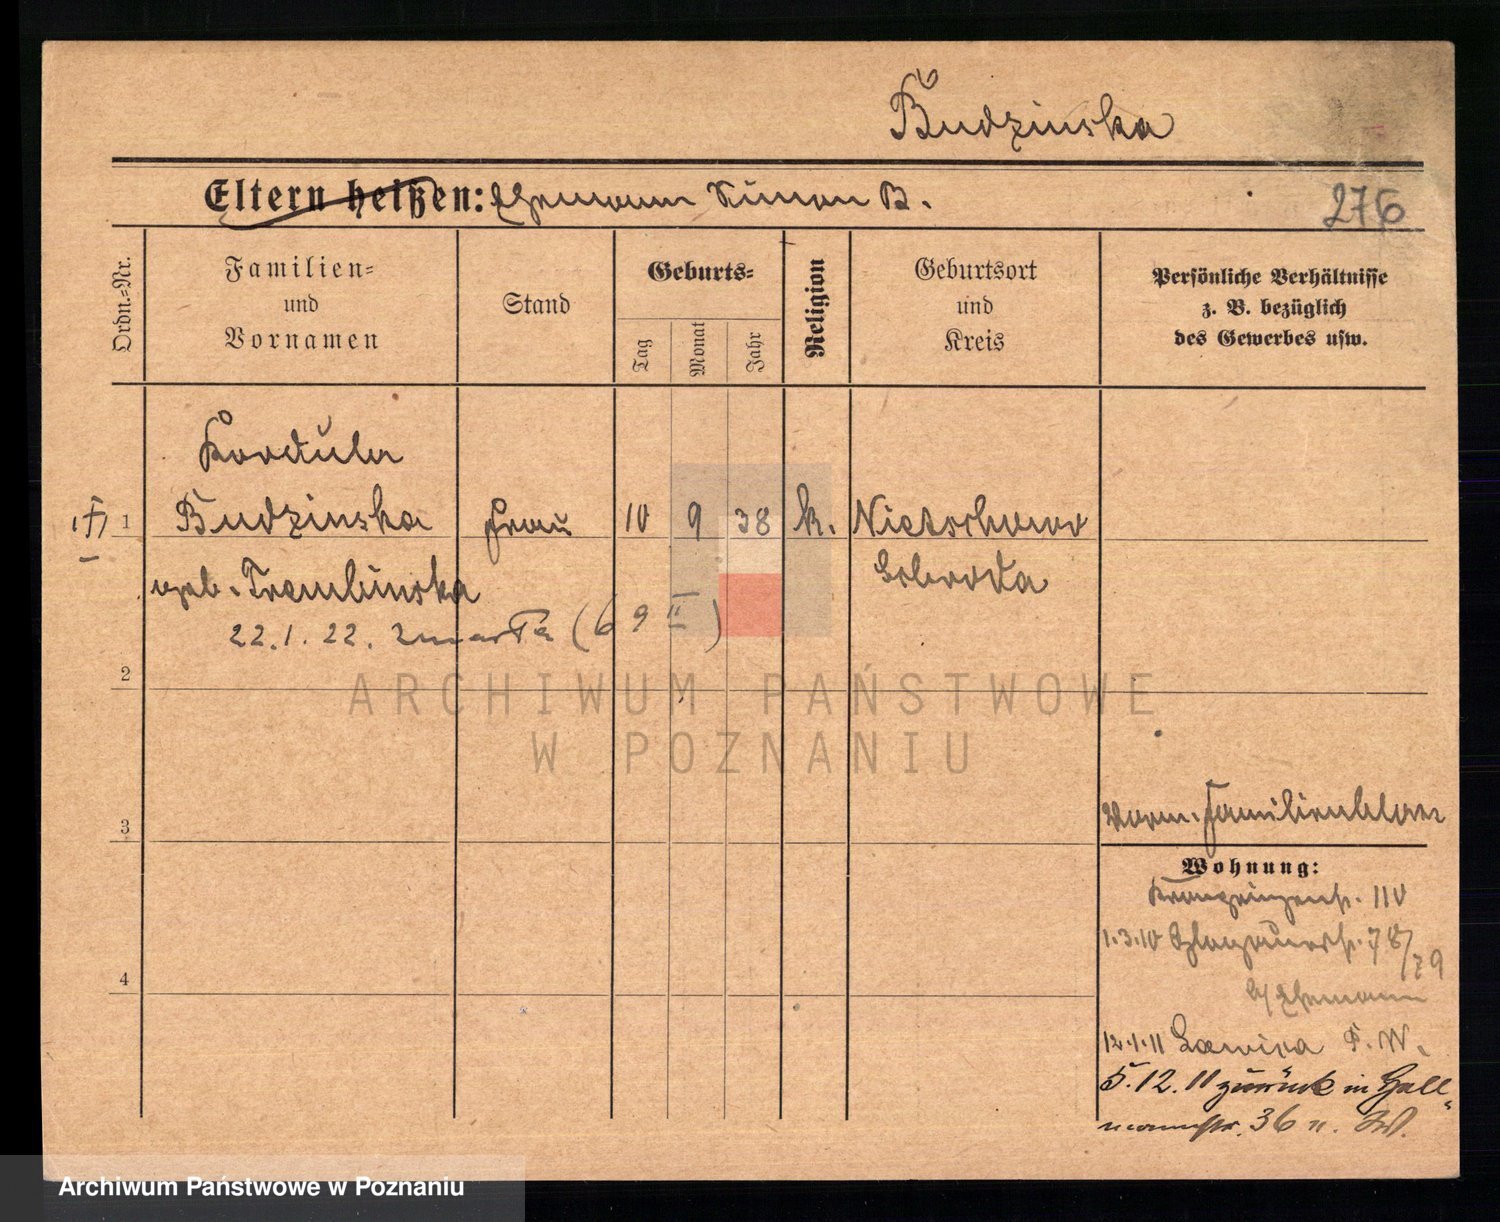 Budzinska
Eltern heißen: Ehemann Simon B.
276
Ordn.=Nr.
Familien=
und
Vornamen
Stand
Geburts=
Tag
Monat
Jahr
Religion
Geburtsort
und
Kreis
Persönliche Verhältnisse
z. B. bezüglich
des Gewerbes usw.
Kordula
1 Budzinska Frau 10 9 38 k. Nietschowo
geb. Schroda
22.1.22. zmarła (69 II)
2
ARCHIWUM PAŃSTWOWE
W POZNANIU
3
Familienblatt
Wohnung:
Kronprinzenstr. 110
1.3.10 78/79
b/ Ehemann
4
12.1.11 Lawica F. W.
5.12.11 zurück in Hall-
mannstr. 36 n. W.
Archiwum Państwowe w Poznaniu